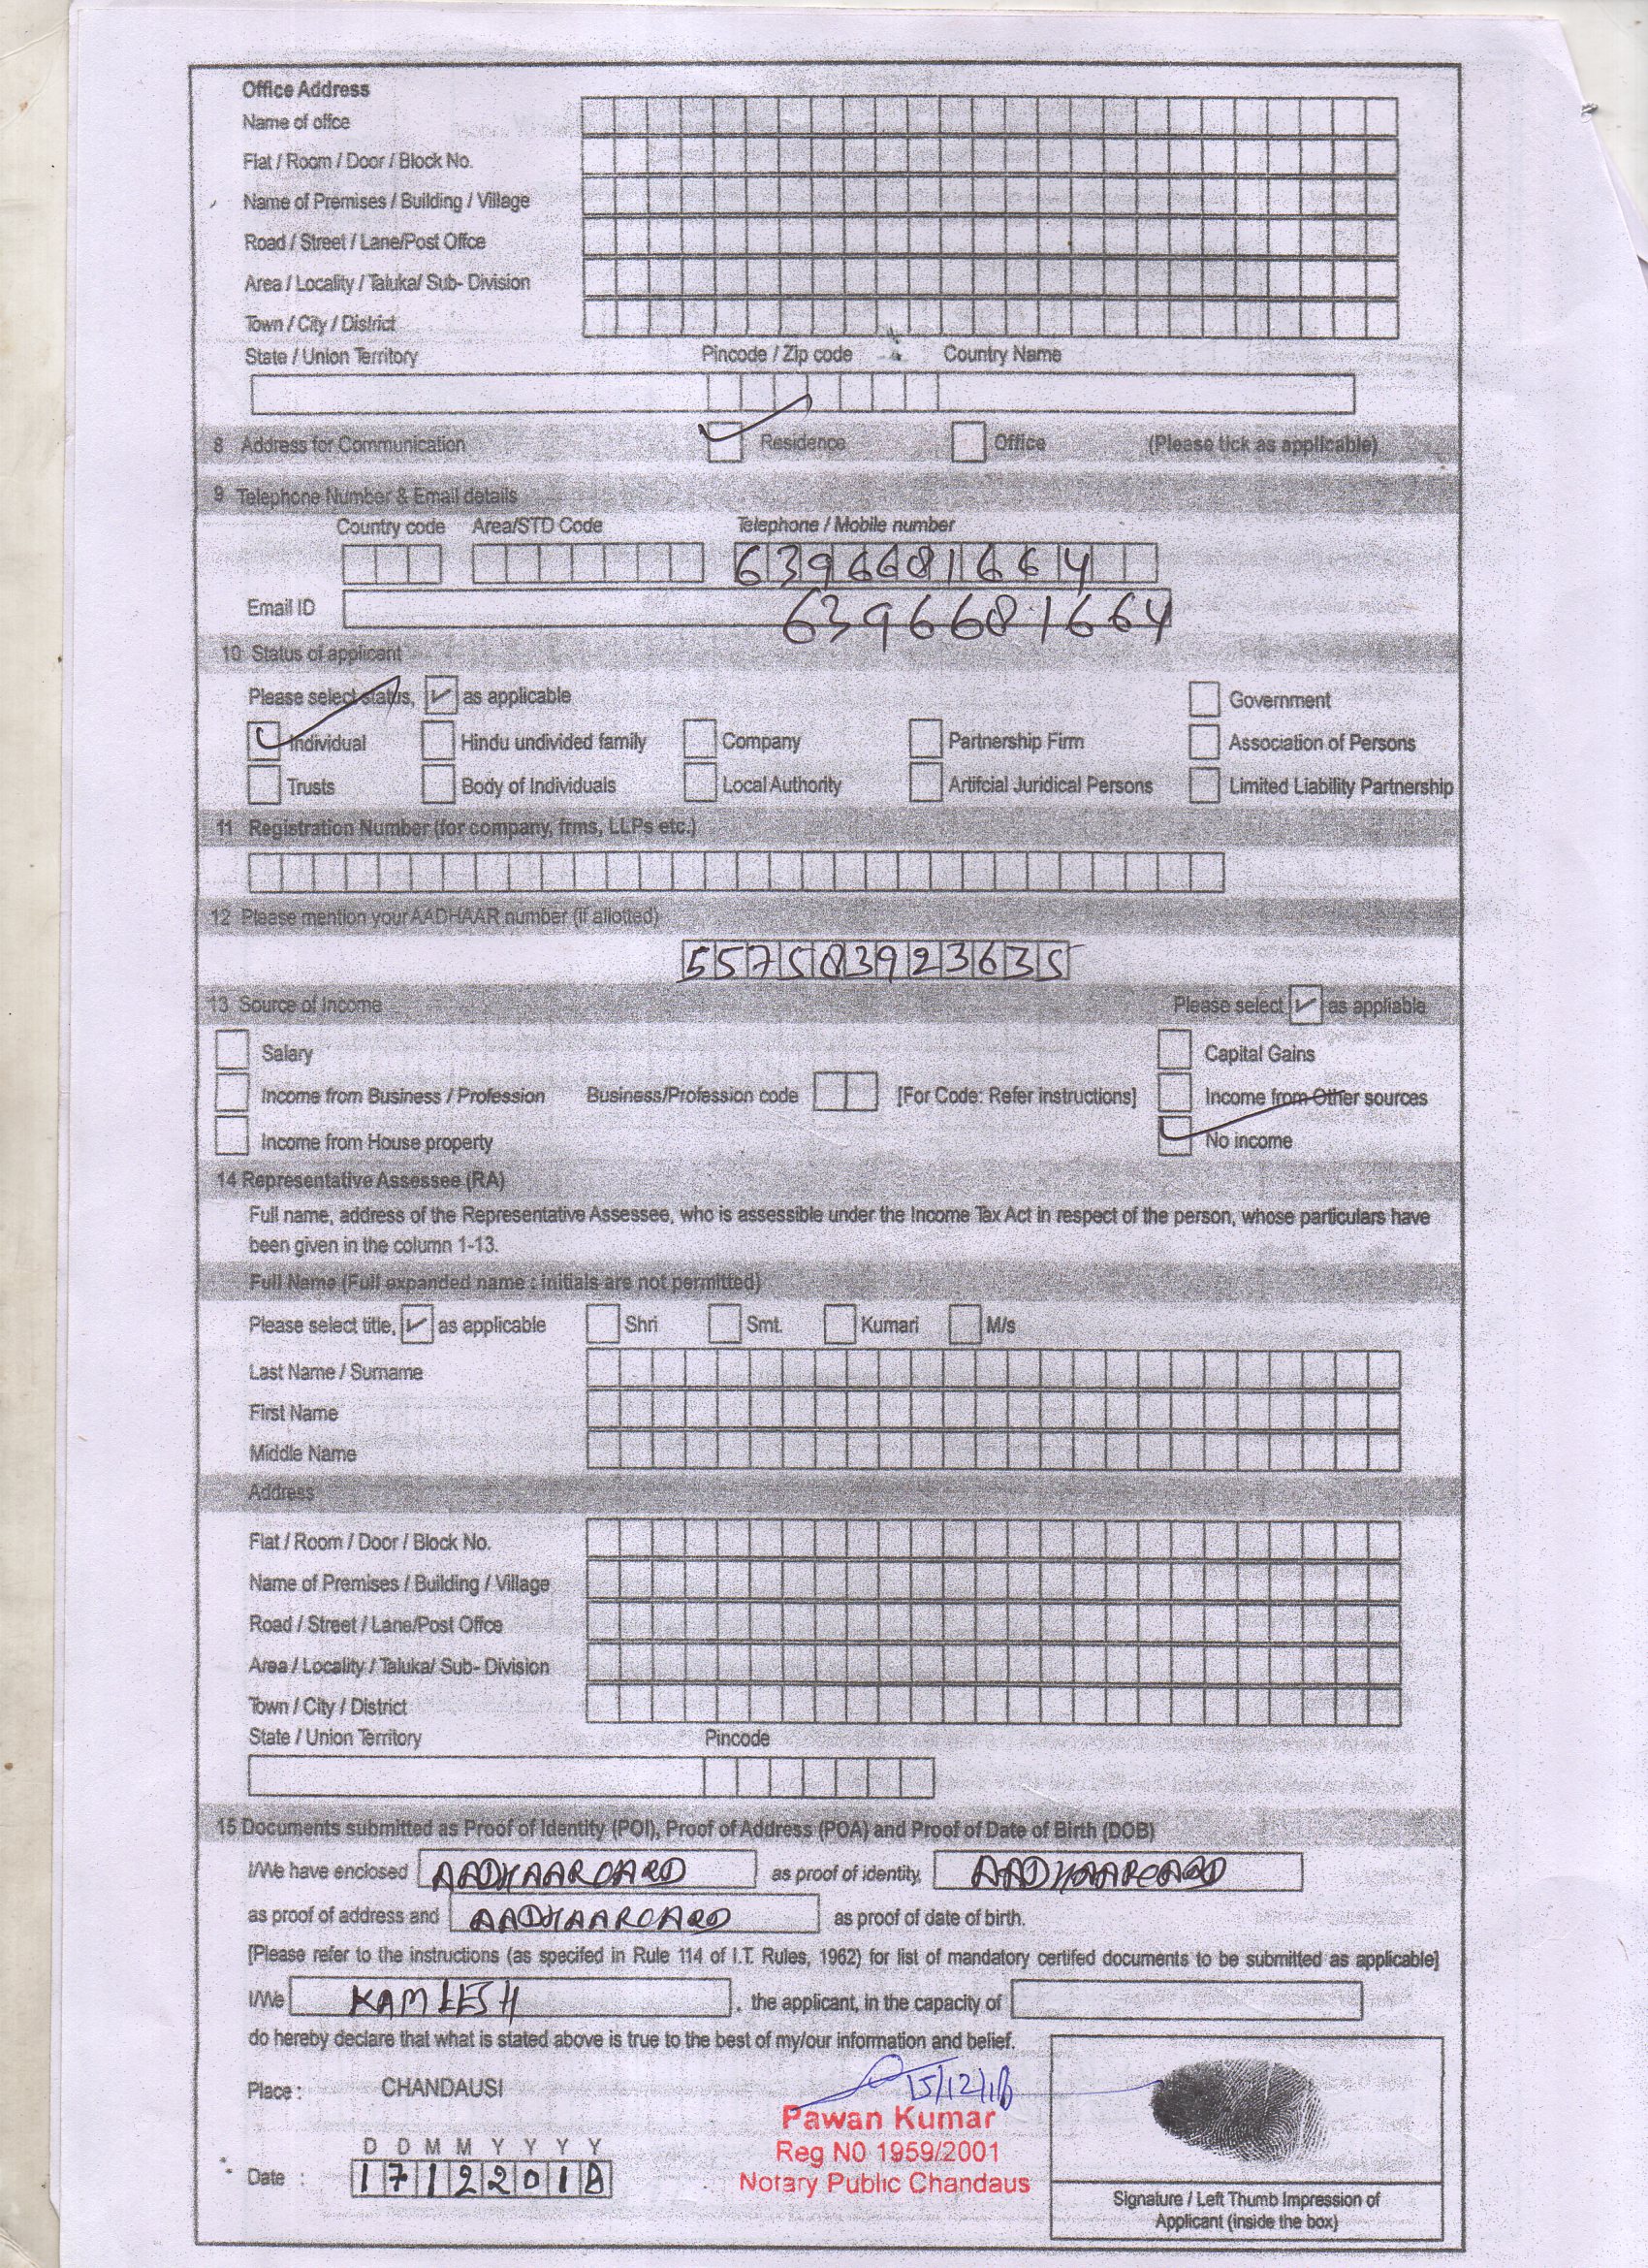 Office Address
Name of offce
Flat / Room / Door / Block No.
Name of Premises / Building / Village
Road / Street / Lane/Post Offce
Area / Locality / Taluka/ Sub- Division
Town / City / District
State / Union Territory Pincode / Zip code Country Name
8 Address for Communication Residence Office (Please tick as applicable)
9 Telephone Number & Email details
Country code Area/STD Code Telephone / Mobile number
6396681664
Email ID 6396681664
10 Status of applicant
Please select status, ✓ as applicable Government
Individual Hindu undivided family Company Partnership Firm Association of Persons
Trusts Body of Individuals Local Authority Artifcial Juridical Persons Limited Liability Partnership
11 Registration Number (for company, frms, LLPs etc.)
12 Please mention your AADHAAR number (if allotted)
557583923635
13 Source of Income Please select ✓ as appliable
Salary Capital Gains
Income from Business / Profession Business/Profession code [For Code: Refer instructions] Income from Other sources
Income from House property No income
14 Representative Assessee (RA)
Full name, address of the Representative Assessee, who is assessible under the Income Tax Act in respect of the person, whose particulars have
been given in the column 1-13.
Full Name (Full expanded name : initials are not permitted)
Please select title, ✓ as applicable Shri Smt. Kumari M/s
Last Name / Surname
First Name
Middle Name
Address
Flat / Room / Door / Block No.
Name of Premises / Building / Village
Road / Street / Lane/Post Offce
Area / Locality / Taluka/ Sub- Division
Town / City / District
State / Union Territory Pincode
15 Documents submitted as Proof of Identity (POI), Proof of Address (POA) and Proof of Date of Birth (DOB)
I/We have enclosed AADHAARCARD as proof of identity, AADHAARCARD
as proof of address and AADHAARCARD as proof of date of birth.
[Please refer to the instructions (as specifed in Rule 114 of I.T. Rules, 1962) for list of mandatory certifed documents to be submitted as applicable]
I/We KAMLESH , the applicant, in the capacity of
do hereby declare that what is stated above is true to the best of my/our information and belief.
15/12/18
Place : CHANDAUSI
Pawan Kumar
Reg N0 1959/2001
Notary Public Chandaus
D D M M Y Y Y Y
Date : 17122018
Signature / Left Thumb Impression of
Applicant (inside the box)